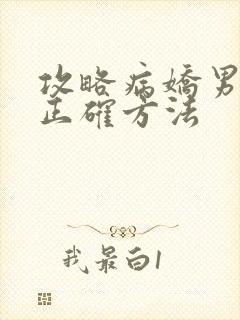 攻略病嬌男
正確方法
我最白1